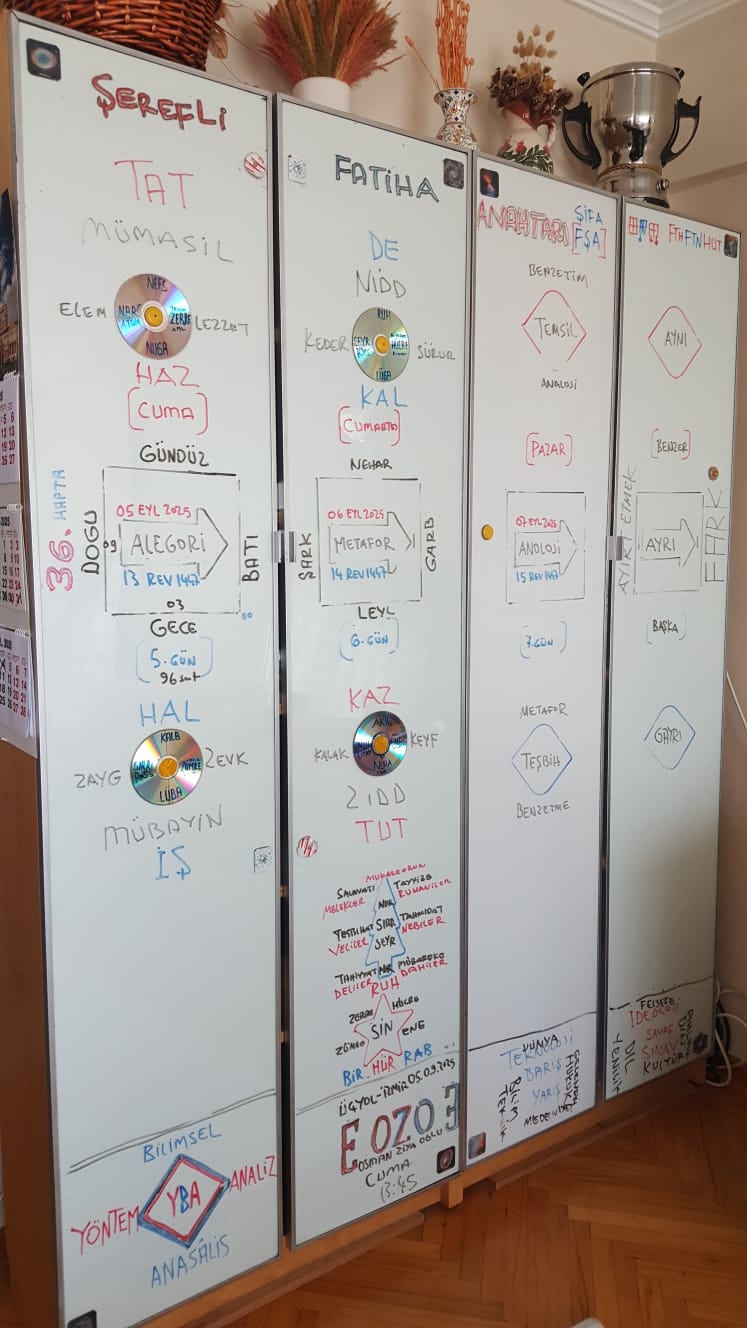 ŞEREFLİ
TAT
MÜMASİL
NEFS
ELEM
ZERRE
LEZZET
NUGA
HAZ
[CUMA]
GÜNDÜZ
36. HAFTA
DOĞU
09
05 EYL 2025
ALEGORİ
13 REV 1447
BATI
03
GECE
[5. GÜN]
96 saat
HAL
KALB
ZAYG
ZEVK
LÜBA
MÜBAYİN
İŞ
BİLİMSEL
YÖNTEM
YBA
ANALİZ
ANASÂLİS
FATİHA
DE
NİDD
RUH
KEDER
SEYR
HÜCRE
SÜRUR
LÜBA
KAL
[CUMARTESİ]
NEHAR
ŞARK
06 EYL 2025
METAFOR
14 REV 1447
GARB
LEYL
[6. GÜN]
KAZ
AKIL
KALAK
KEYF
NUHA
ZIDD
TUT
SALAVATI
TAYYİBE
MELEKLER
NUR
RUHANİLER
TESBİHAT
SIRR
TAHMİDAT
VELİLER
SEYR
NEBİLER
TAHİYYAT
NAR
MÜBAREKE
DELİLER
DAHİLER
RUH
ZERRE
HÜCRE
SİN
ZÜMRE
ENE
BİR HÜR RAB
ÜÇYOL-İZMİR 05.09.2025
EOZO3
OSMAN ZİYA OĞLU
CUMA
13:45
ANAHTARI
ŞİFA
[FŞA]
BENZETİM
TEMSİL
ANALOJİ
[PAZAR]
07 EYL 2025
ANOLOJİ
15 REV 1447
[7. GÜN]
METAFOR
TEŞBİH
BENZETME
DÜNYA
TEKNOLOJİ
BARIŞ
YARIŞ
MEDENİYET
BİLİM
TEKNİK
GELENEK
HUKUK
FTHFTNHUT
AYNI
[BENZER]
AYIRT ETMEK
AYRI
FARK
[BAŞKA]
GAYRI
FELSEFE
İDEOLOJİ
SAVAŞ
SINAV
KÜLTÜR
DİL
YENİLİK
AHLAK
DİN